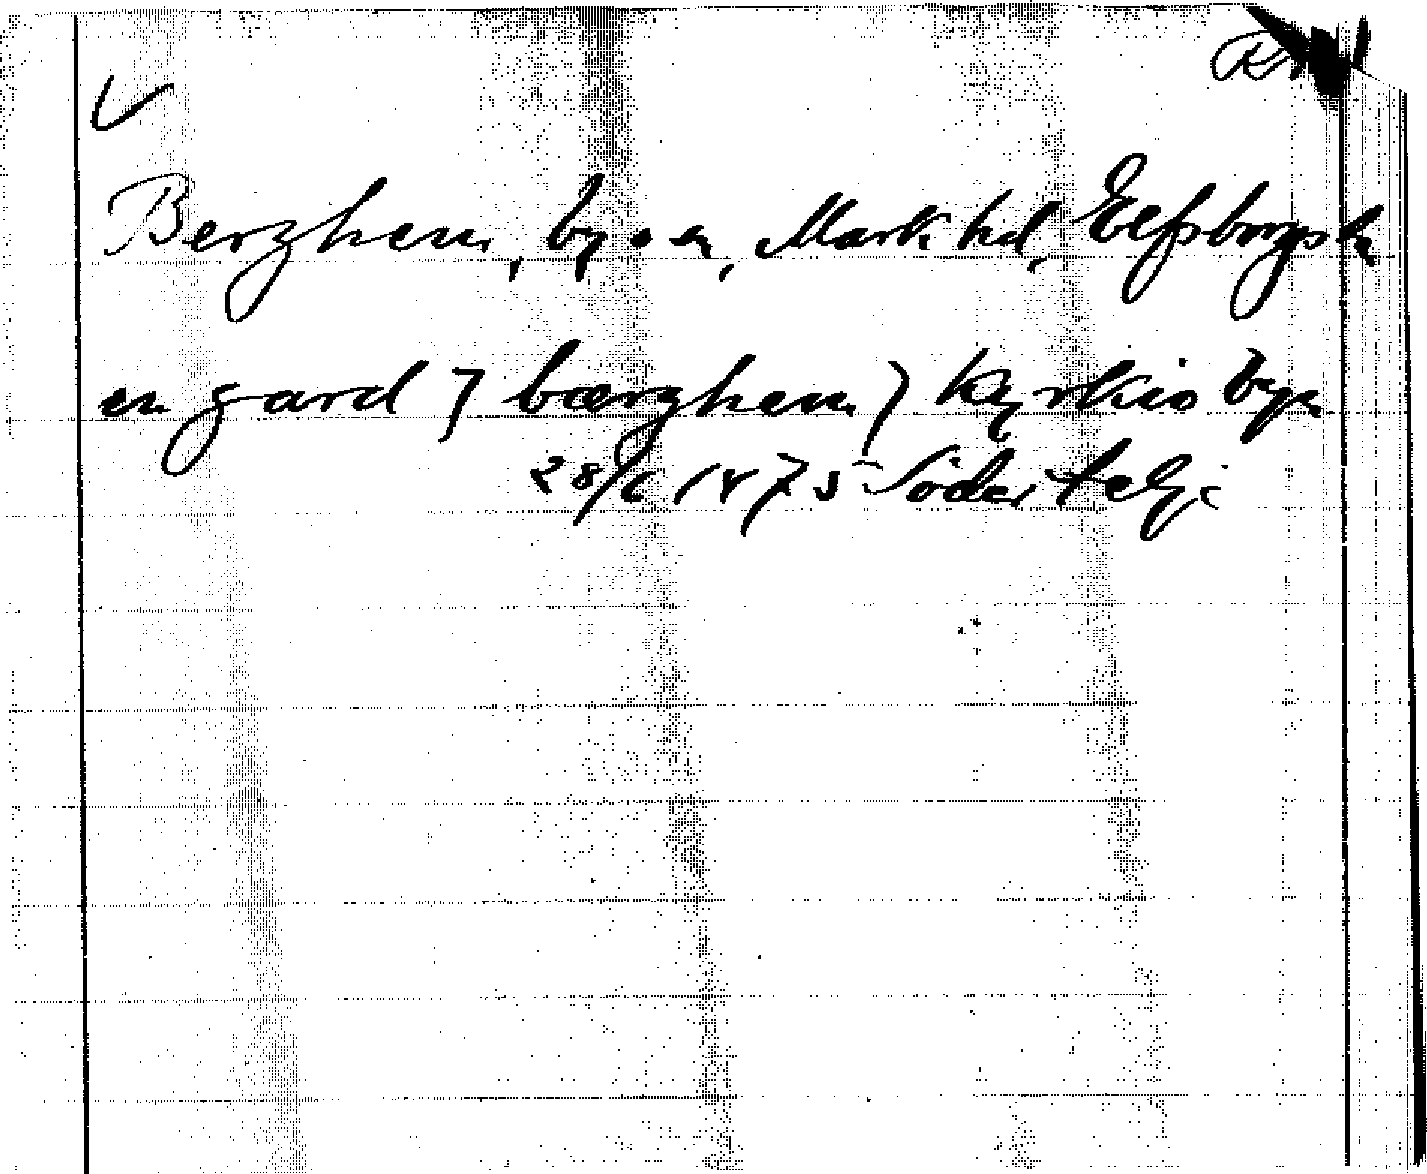 Berghem, by o sn, Mark hd, Elfsborgs ln
en gard j bærghem) kyrkio byn
28/6 1875 Södertelje